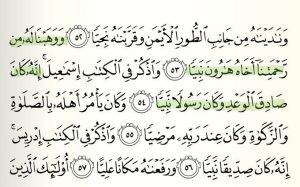 وَنَٰدَيْنَٰهُ مِن جَانِبِ ٱلطُّورِ ٱلْأَيْمَنِ وَقَرَّبْنَٰهُ نَجِيًّا ٥٢ وَوَهَبْنَا لَهُۥ مِن
رَّحْمَتِنَآ أَخَاهُ هَٰرُونَ نَبِيًّا ٥٣ وَٱذْكُرْ فِى ٱلْكِتَٰبِ إِسْمَٰعِيلَ ۚ إِنَّهُۥ كَانَ
صَادِقَ ٱلْوَعْدِ وَكَانَ رَسُولًا نَّبِيًّا ٥٤ وَكَانَ يَأْمُرُ أَهْلَهُۥ بِٱلصَّلَوٰةِ
وَٱلزَّكَوٰةِ وَكَانَ عِندَ رَبِّهِۦ مَرْضِيًّا ٥٥ وَٱذْكُرْ فِى ٱلْكِتَٰبِ إِدْرِيسَ ۚ
إِنَّهُۥ كَانَ صِدِّيقًا نَّبِيًّا ٥٦ وَرَفَعْنَٰهُ مَكَانًا عَلِيًّا ٥٧ أُو۟لَٰٓئِكَ ٱلَّذِينَ